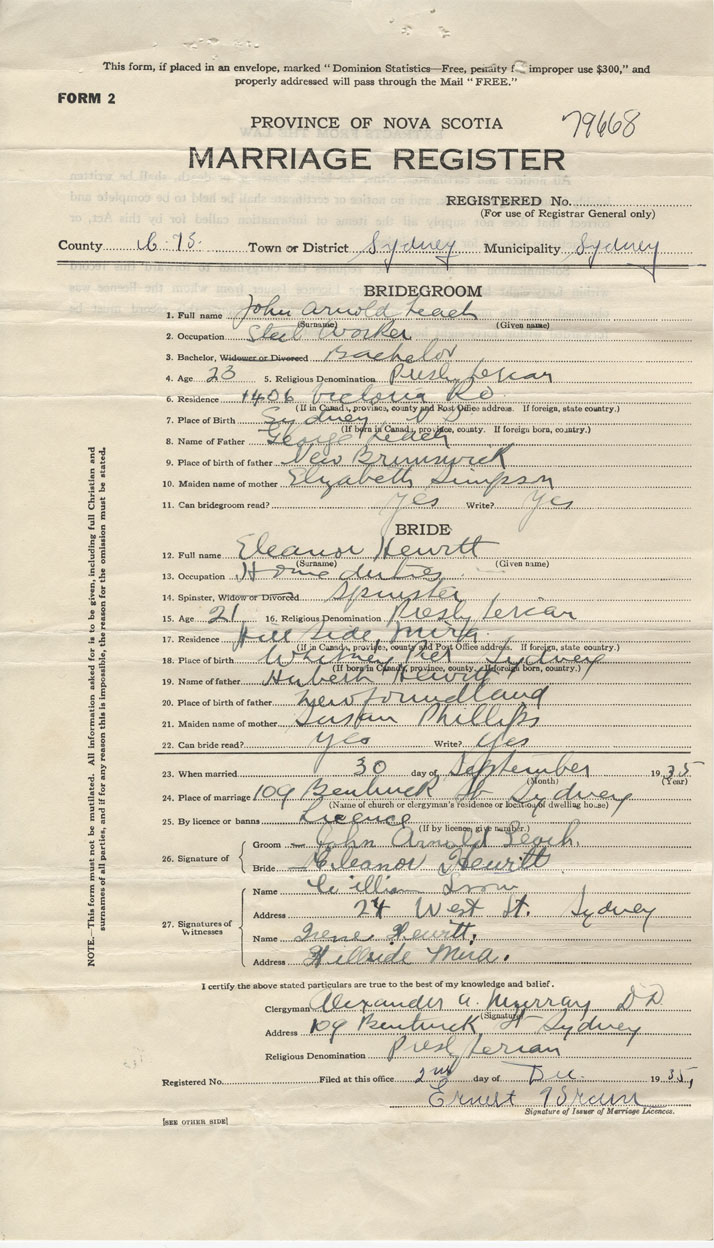 This form, if placed in an envelope, marked "Dominion Statistics—Free, penalty f improper use $300," and
properly addressed will pass through the Mail "FREE."
FORM 2
PROVINCE OF NOVA SCOTIA 79668
MARRIAGE REGISTER
REGISTERED No.
(For use of Registrar General only)
County Town or District Sydney Municipality Sydney
BRIDEGROOM
1. Full name John Arnold Leach
(Surname) (Given name)
2. Occupation Steel Worker
3. Bachelor, Widower or Divorced Bachelor
4. Age 23 5. Religious Denomination Presbyterian
6. Residence 1406 Victoria Rd
(If in Canada, province, county and Post Office address. If foreign, state country.)
7. Place of Birth Sydney N S
(If born in Canada, province, county. If foreign born, country.)
8. Name of Father George Leach
9. Place of birth of father New Brunswick
10. Maiden name of mother Elizabeth Simpson
11. Can bridegroom read? Yes Write? Yes
BRIDE
12. Full name Eleanor Hewitt
(Surname) (Given name)
13. Occupation Home duties
14. Spinster, Widow or Divorced Spinster
15. Age 21 16. Religious Denomination Presbyterian
17. Residence Hill Side Mira
(If in Canada, province, county and Post Office address. If foreign, state country.)
18. Place of birth Whitney Pier Sydney
(If born in Canada, province, county. If foreign born, country.)
19. Name of father Hubert Hewitt
20. Place of birth of father Newfoundland
21. Maiden name of mother Susan Phillips
22. Can bride read? Yes Write? Yes
23. When married 30 day of September 1935
(Month) (Year)
24. Place of marriage 109 Bentinck St Sydney
(Name of church or clergyman's residence or location of dwelling house)
25. By licence or banns Licence
(If by licence, give number.)
26. Signature of
Groom John Arnold Leach.
Bride Eleanor Hewitt
27. Signatures of Witnesses
Name William
Address 24 West St. Sydney
Name Irene Hewitt.
Address Hillside Mira.
I certify the above stated particulars are true to the best of my knowledge and belief.
Clergyman Alexander A. Murray D.D.
(Signature)
Address 109 Bentinck St Sydney
Religious Denomination Presbyterian
Registered No. Filed at this office 2nd day of Dec. 1935,
Ernest
Signature of Issuer of Marriage Licences.
[SEE OTHER SIDE]
NOTE.—This form must not be mutilated. All information asked for is to be given, including full Christian and
surnames of all parties, and if for any reason this is impossible, the reason for the omission must be stated.